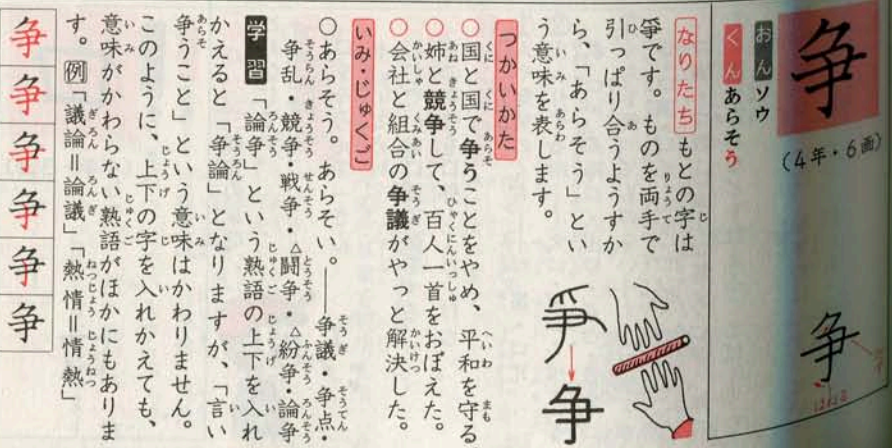 争
(4年・6画)
おん ソウ
くん あらそう
なりたち もとの字は
爭です。ものを両手で
引っぱり合うようすか
ら、「あらそう」とい
う意味を表します。
爭
争
争
はねる
つかいかた
○国と国で争うことをやめ、平和を守る
○姉と競争して、百人一首をおぼえた。
○会社と組合の争議がやっと解決した。
いみ・じゅくご
○あらそう。あらそい。――争議・争点・
争乱・競争・戦争・△闘争・△紛争・論争
学習 「論争」という熟語の上下を入れ
かえると「争論」となりますが、「言い
争うこと」という意味はかわりません。
このように、上下の字を入れかえても、
意味がかわらない熟語がほかにもありま
す。例「議論=論議」「熱情=情熱」
争
争
争
争
争
争